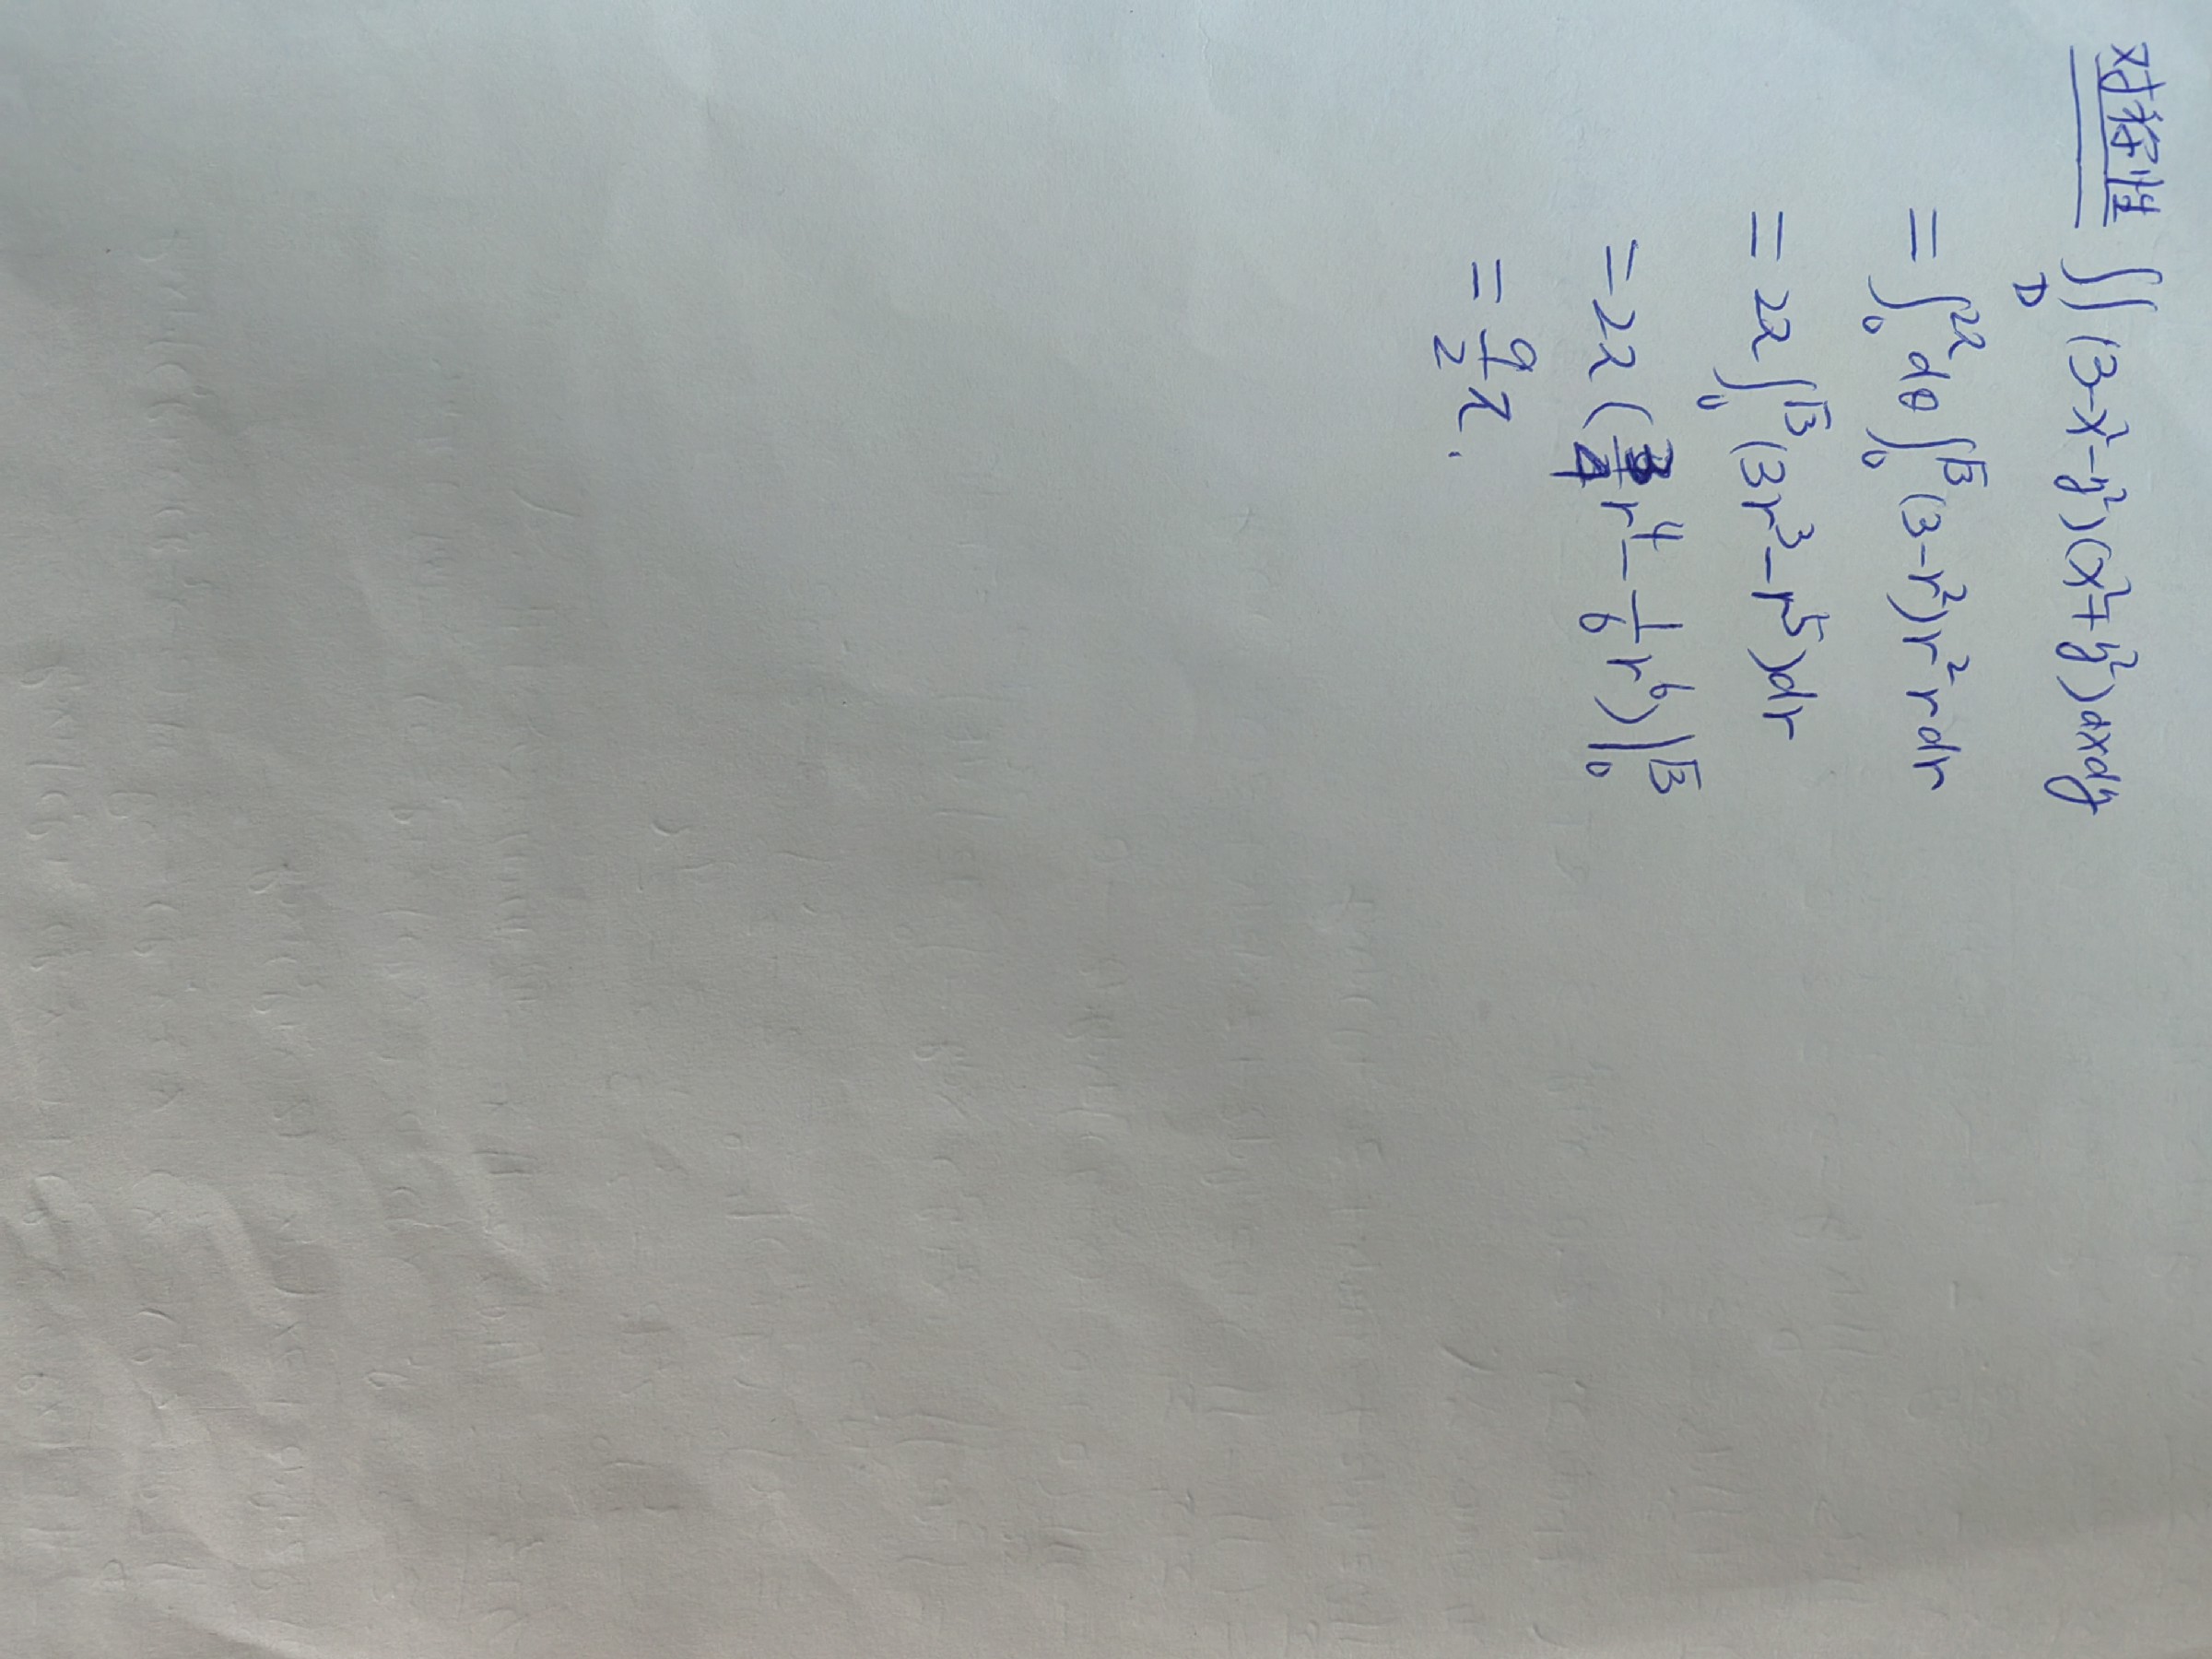 对称性 ∬_D (3-x²-y²)(x²+y²)dxdy
= ∫₀^{2π} dθ ∫₀^{√3} (3-r²)r² r dr
= 2π ∫₀^{√3} (3r³-r⁵)dr
= 2π (3/4 r⁴ - 1/6 r⁶)|₀^{√3}
= 9/2 π.